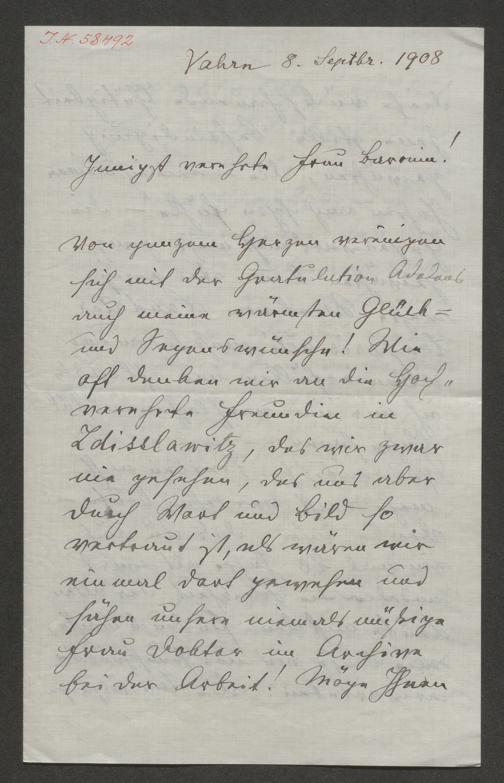 J.N. 58492
Vahrn 8. Septbr. 1908
Innigst verehrte Frau Baronin!
Von ganzem Herzen vereinigen
sich mit der Gratulation
auch meine wärmsten Glück-
und Segenswünsche! Wie
oft denken wir an die Hoch-
verehrte Freundin in
Zdisslawitz, das wir zwar
nie gesehen, das uns aber
durch Wort und Bild so
vertraut ist, als wären wir
einmal dort gewesen und
sähen unsere niemals müßige
Frau Doktor im Archive
bei der Arbeit! Möge Ihnen